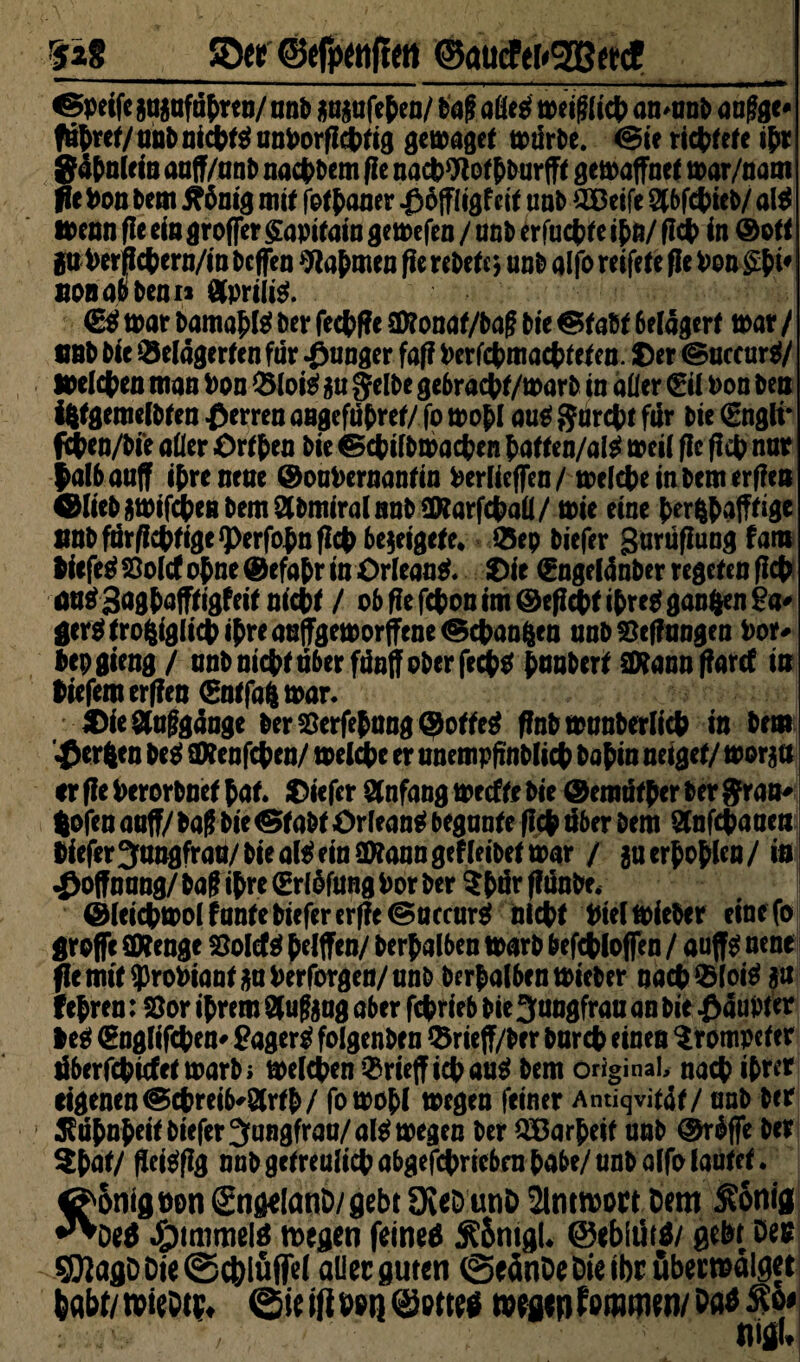 528 Der Gespenster Gauckel-Werck
Speise zuzuführen/ und zuzusehen/ daß alles weißlich an-und außge-
führet/ und nichts unvorsichtig gewaget würde. Sie richtete ihr
Fähnlein auff/und nachdem sie nach Nothdurfft gewaffnet war/nam
sie von dem König mit sothaner Höffligkeit und Weise Abschied/ als
wenn sie ein grosser Capitain gewesen / und ersuchte ihn/ sich in Gott
zu versichern/in dessen Nahmen sie redete; und also reisete sie von Chi-
non ab den 12 Aprilis.
Es war damahls der sechste Monat/daß die Stadt belägert war /
und die Belägerten für Hunger fast verschmachteten. Der Succurs/
welchen man von Blois zu Felde gebracht/ward in aller Eil von den
itztgemeldten Herren angeführet/ so wohl aus Furcht für die Engli-
schen/die aller Orthen die Schildwachen hatten/als weil sie sich nur
halb auff ihre neue Gouvernantin verliessen / welche in dem ersten
Glied zwischen dem Admiral und Marschall/ wie eine hertzhafftige
und fürsichtige Persohn sich bezeigete. Bey dieser Zurüstung kam
dieses Volck ohne Gefahr in Orleans. Die Engeländer regeten sich
aus Zaghafftigkeit nicht / ob sie schon im Gesicht ihres gantzen La-
gers trotziglich ihre auffgeworffene Schantzen und Vestungen vor-
bey gieng / und nicht über fünff oder sechs hundert Mann starck in
diesem ersten Entsatz war.
Die Außgänge der Versehung Gottes sind wunderlich in dem
Hertzen des Menschen/ welche er unempfindlich dahin neiget/ worzu
er sie verordnet hat. Dieser Anfang weckte die Gemüther der Fran-
tzosen auff/ daß die Stadt Orleans begunte sich über dem Anschauen
dieser Jungfrau/ die als ein Mann gekleidet war / zu erhohlen/ in
Hoffnung/ daß ihre Erlösung vor der Thür stünde.
Gleichwol kunte dieser erste Succurs nicht viel wieder eine so
grosse Menge Volcks helffen/ derhalben ward beschlossen / auffs neue
sie mit Proviant zu versorgen/ und derhalben wieder nach Blois zu
kehren: Vor ihrem Außzug aber schrieb die Jungfrau an die Häupter
des Englischen- Lagers folgenden Brieff/der durch einen Trompeter
überschicket ward; welchen Brieff ich aus dem original, nach ihrer
eigenen Schreib-Arth/ so wohl wegen seiner Antiqvität/ und der
Kühnheit dieser Jungfrau/ als wegen der Warheit und Grösse der
That/ fleissig und getreulich abgeschrieben habe/ und also lautet.
König von Engeland/ gebt Red und Antwort dem König
des Himmels wegen seines Königl. Geblüts/ gebt der
Magd die Schlüssel aller guten Seände die ihr überwälget
habt/ wiedir. Sie ist von Gottes wegen kommen/ das Kö-
nigl.